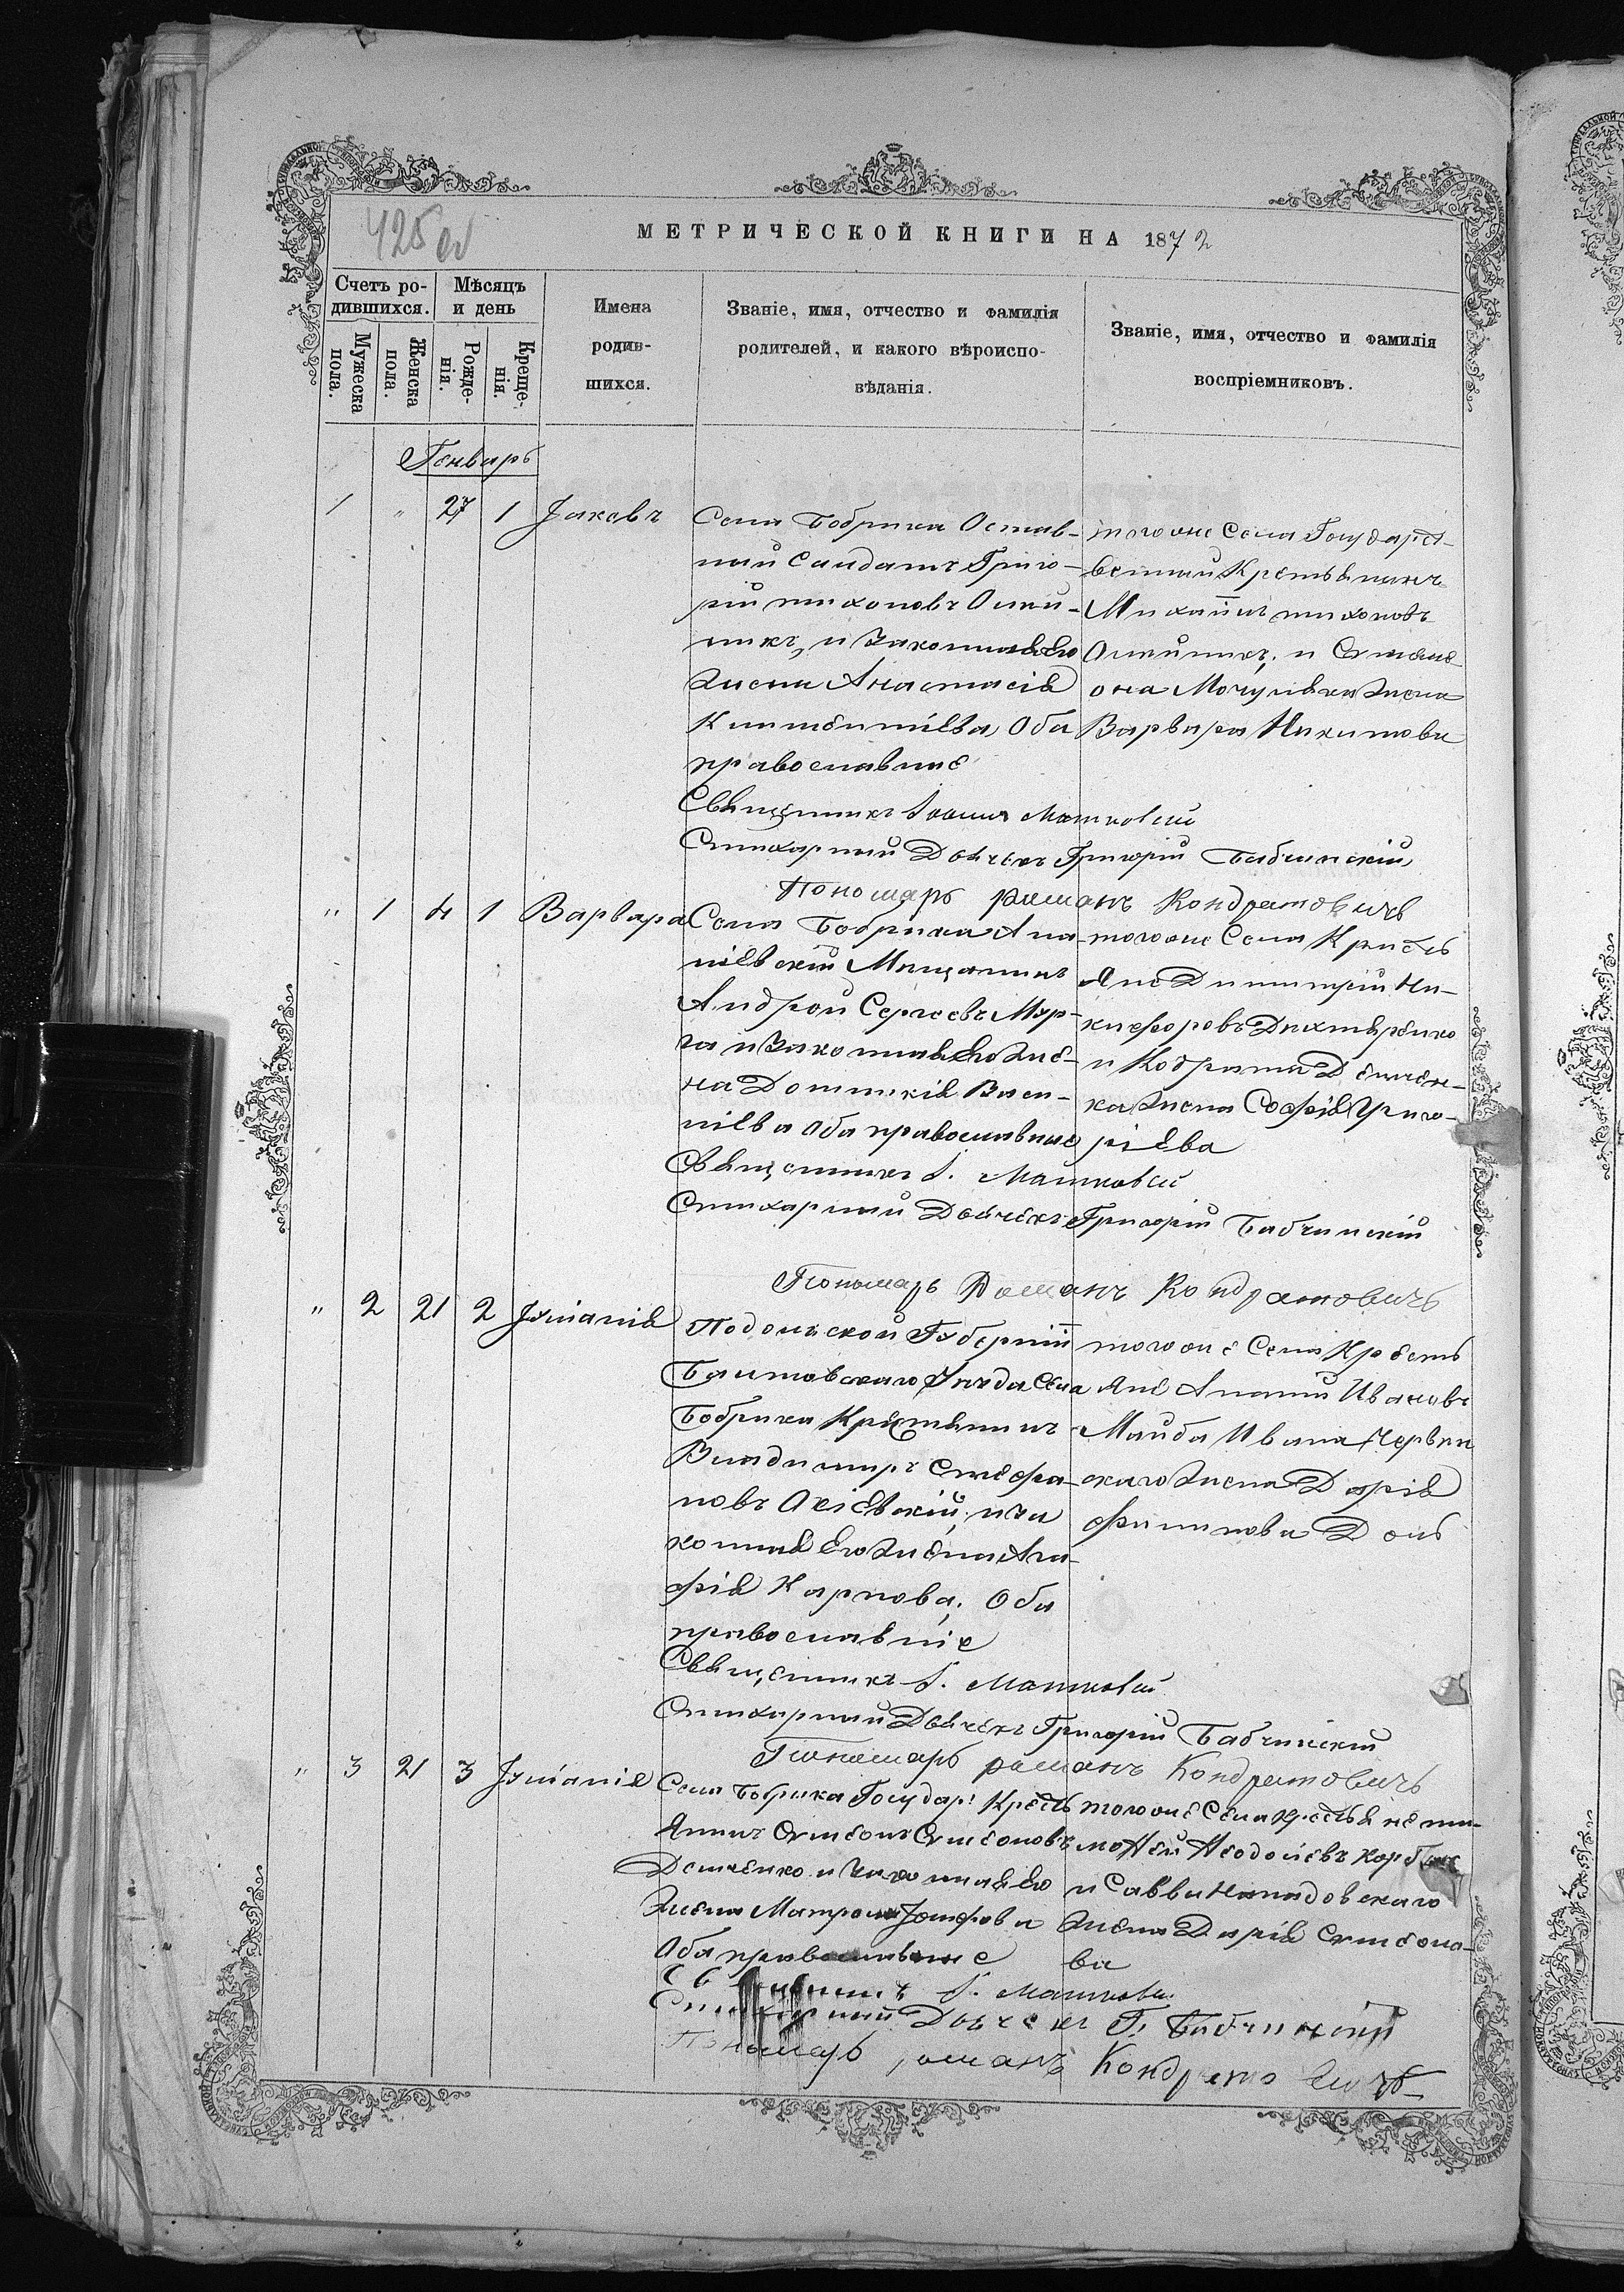 425 об
МЕТРИЧЕСКОЙ КНИГИ НА 1872
Счетъ ро-
дившихся.
Мѣсяцъ
и день
Мужеска
пола.
Женска
пола.
Рожде-
нія.
Креще-
нія.
Имена
родив-
шихся.
Званіе, имя, отчество и фамилія
родителей, и какого вѣроиспо-
вѣданія.
Званіе, имя, отчество и фамилія
воспріемниковъ.
Генварь
1 " 27 1 Іаковъ
Села Бобрика Отстав-
ный Солдатъ Григо-
рій Тихоновъ Олій-
никъ, и Законная Его
Жена Анастасія
Климентіева, Оба
православные
того же Села Государст-
венный Крестьянинъ
Михаилъ Тихоновъ
Олійникъ; и Симе-
она Мочуляка Жена
Варвара Никитова
Священникъ Іоаннъ Матковскій
Стихарный Дьячекъ Григорій Бабчинскій
Пономарь Романъ Кондратовичъ
" 1 4 1 Варвара
Села Бобрика Ана-
ніевскій Мещанинъ
Андрей Сергеевъ Мур-
га и Законная Его Же-
на Домникія Васи-
ліева Оба православные
того же Села Кресть
яне Димитрій Ни-
кифоровъ Дихтяренко
и Кодрата Демчен-
ка Жена Софія Григо-
ріева
Священникъ І. Матковскій
Стихарный Дьячекъ Григорій Бабчинскій
Пономарь Романъ Кондратовичъ
" 2 21 2 Іуліанія
Подольской Губерніи
Балтовскаго Уезда Села
Бобрика Крестьянинъ
Владимиръ Стефа-
новъ Окіевскій; и За
конная Его Жена Ага-
фія Карпова; Оба
православніе
того же Села Кресть
яне Ананій Ивановъ
Майба Ивана Червин
скаго Жена Дарія
Филипова Дочь
Священникъ І. Матковскій
Стихарный Дьячекъ Григорій Бабчинскій
Пономарь Романъ Кондратовичъ
" 3 21 3 Іуліанія
Села Бобрика Государ: Кресть
янинъ Симеонъ Симеоновъ
Демченко и Законная Его
Жена Матрона Іосифова
Оба православные
того же Села Крестьяне Ти-
мофей Феодосіевъ
и Саввы
Жена Дарія Симеоно-
ва
Священникъ І. Матковскій
Стихарный Дьячекъ Г. Бабчинскій
Пономарь Романъ Кондратовичъ